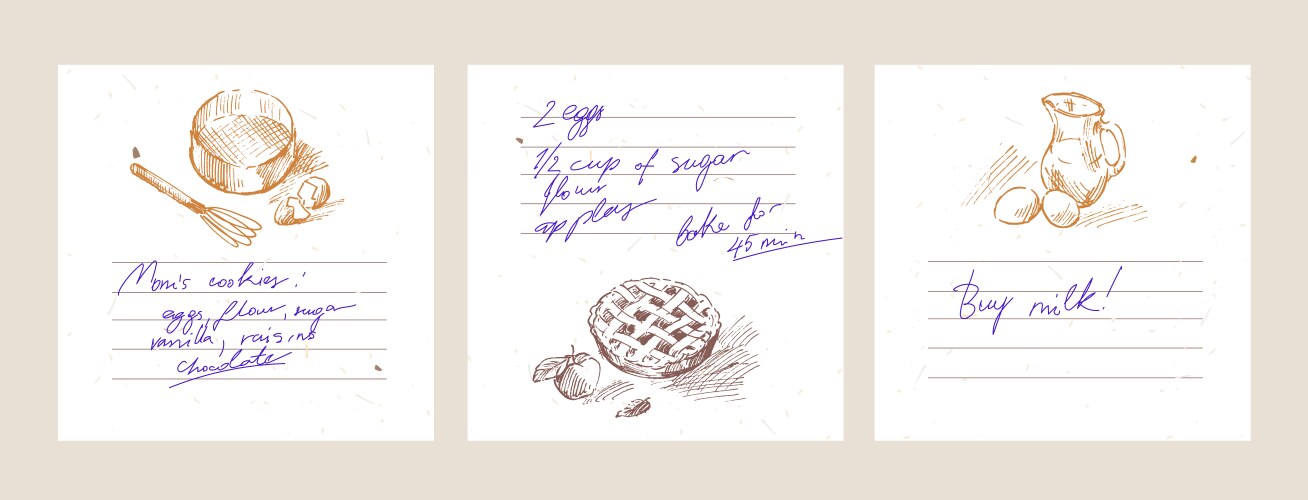 Mom's cookies!
eggs, flour, sugar
vanilla, raisins
chocolate
2 eggs
1/2 cup of sugar
flour
apples
bake for
45 min
Buy milk!